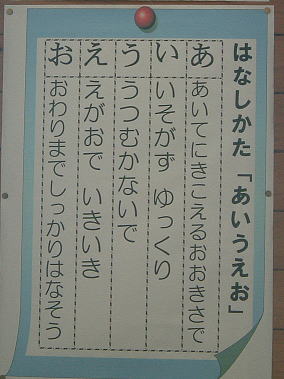 はなしかた「あいうえお」
あ あいてにきこえるおおきさで
い いそがず ゆっくり
う うつむかないで
え えがおで いきいき
お おわりまでしっかりはなそう